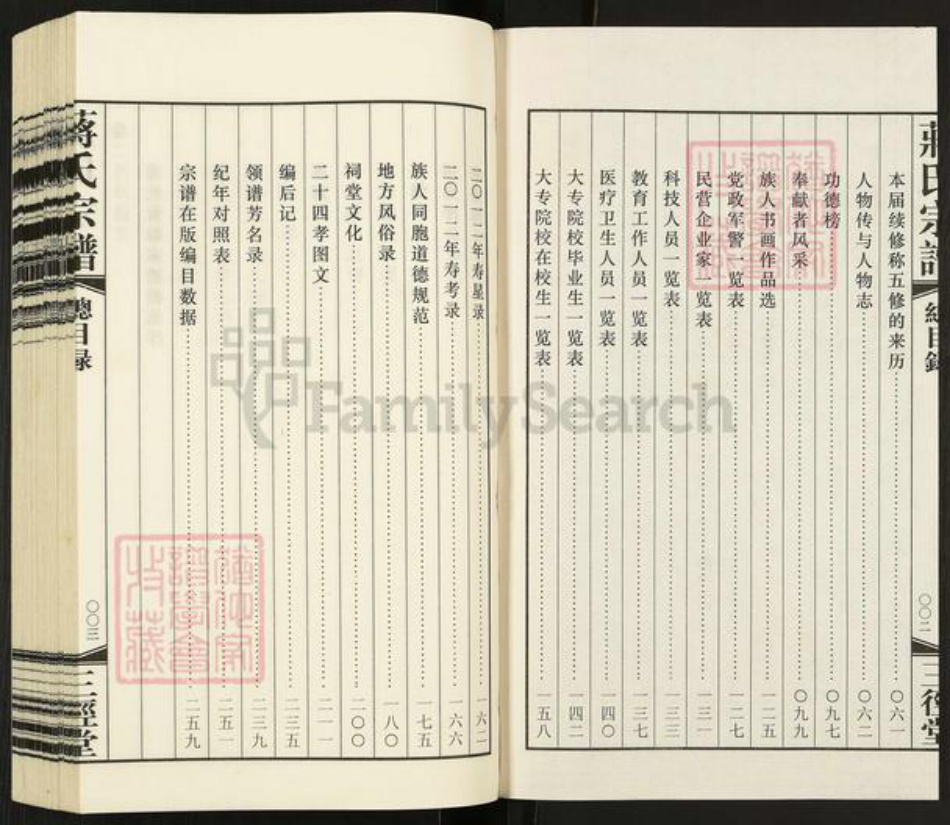 蔣氏宗譜
總目錄
〇〇二
三徑堂
本届续修称五修的来历 〇六一
人物传与人物志 〇六二
功德榜 〇九七
奉献者风采 〇九九
族人书画作品选 一二五
党政军警一览表 一二七
民营企业家一览表 一三一
科技人员一览表 一三三
教育工作人员一览表 一三七
医疗卫生人员一览表 一四〇
大专院校毕业生一览表 一四二
大专院校在校生一览表 一五八
二〇一二年寿星录 一六二
二〇一二年寿考录 一六六
族人同胞道德规范 一七五
地方风俗录 一八〇
祠堂文化 二〇〇
二十四孝图文 二一一
编后记 二三五
领谱芳名录 二三九
纪年对照表 二五一
宗谱在版编目数据 二五九
蔣氏宗譜
總目録
〇〇三
三徑堂
FamilySearch